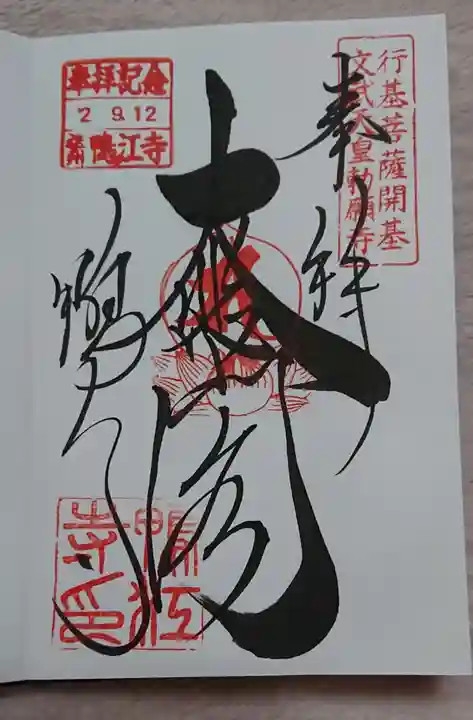 行基菩薩開基
文武天皇勅願寺
奉拝
大悲殿
鴨江寺
奉拝記念
2 9.12
鴨江寺
鴨江寺印